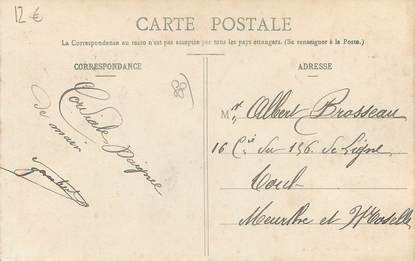 12 €
CARTE POSTALE
La Correspondance au recto n'est pas acceptée par tous les pays étrangers. (Se renseigner à la Poste.)
CORRESPONDANCE
Cordiale Poignée
de main
ADRESSE
Mr Albert Brosseau
16 Cie du 156 de Ligne
Toul
Meurthe et Moselle